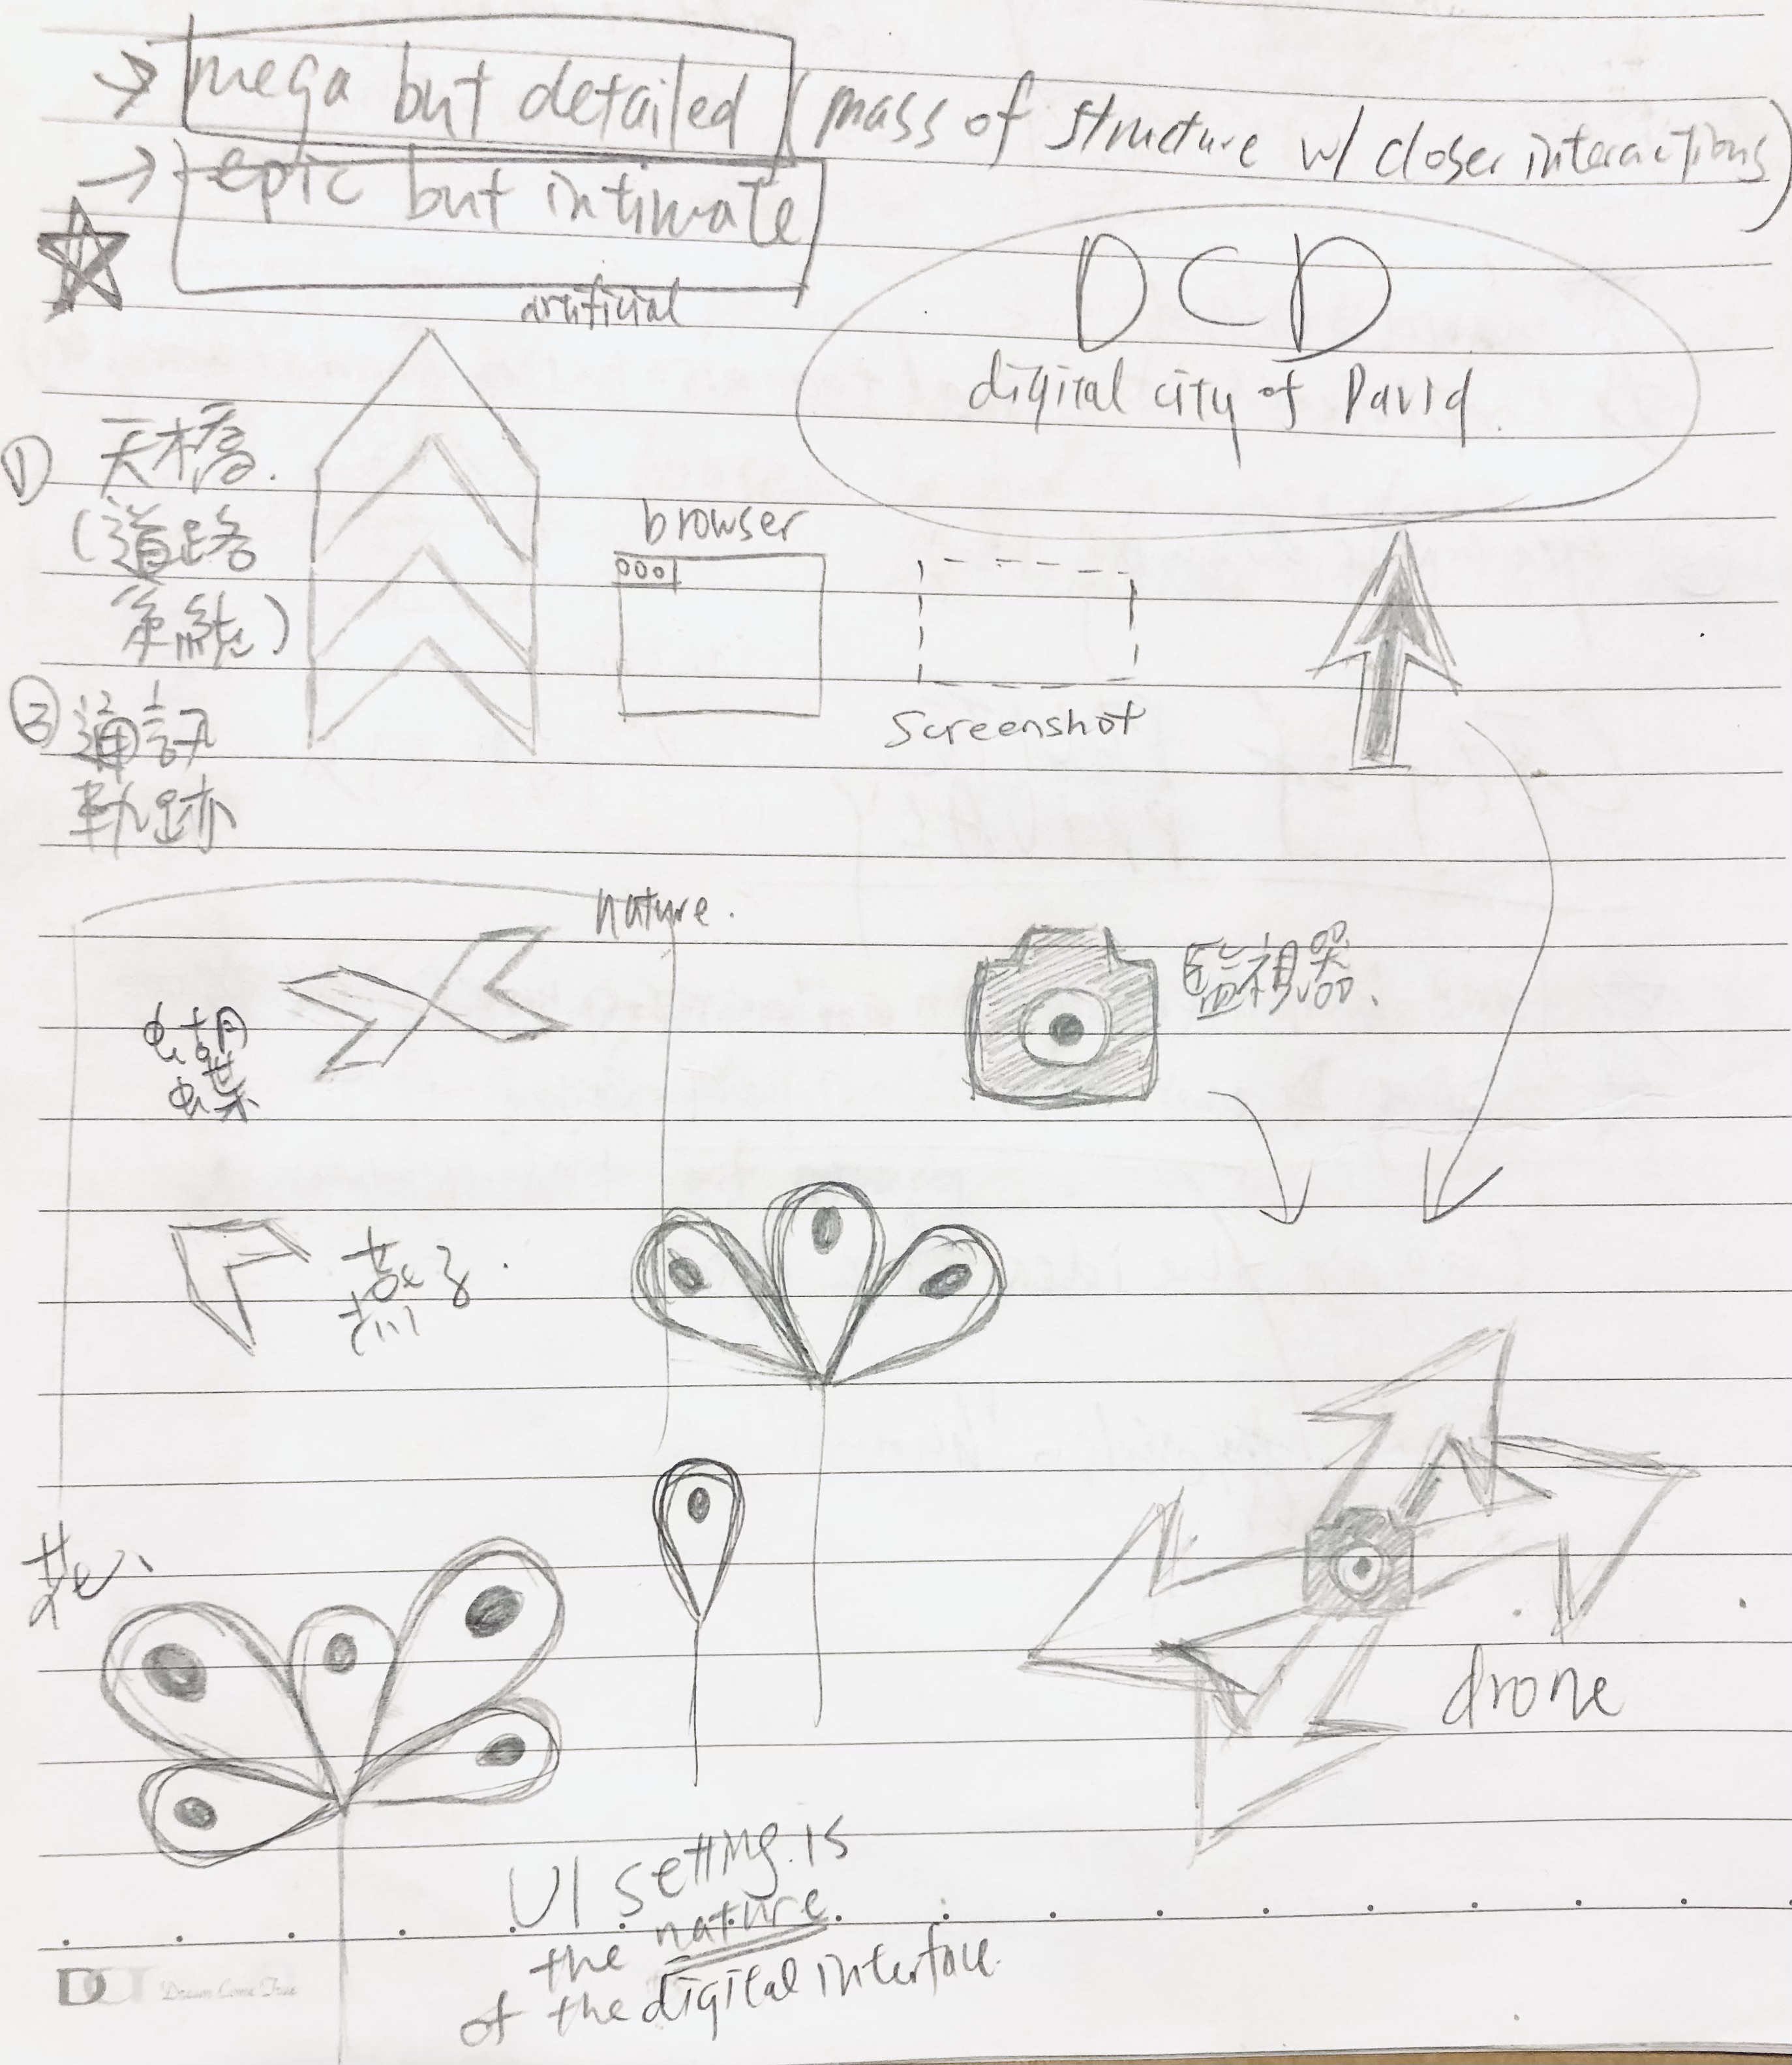 → mega but detailed (mass of structure w/ closer interactions)
→ epic but intimate
artificial
DCD
digital city of David.
① 天橋.
(道路
系統)
browser
Screenshot
② 通訊
軌跡
nature.
監視器、
蝴
蝶
燕子.
花、
drone
UI setting is
the nature
of the digital interface.
DOT Dream Come True